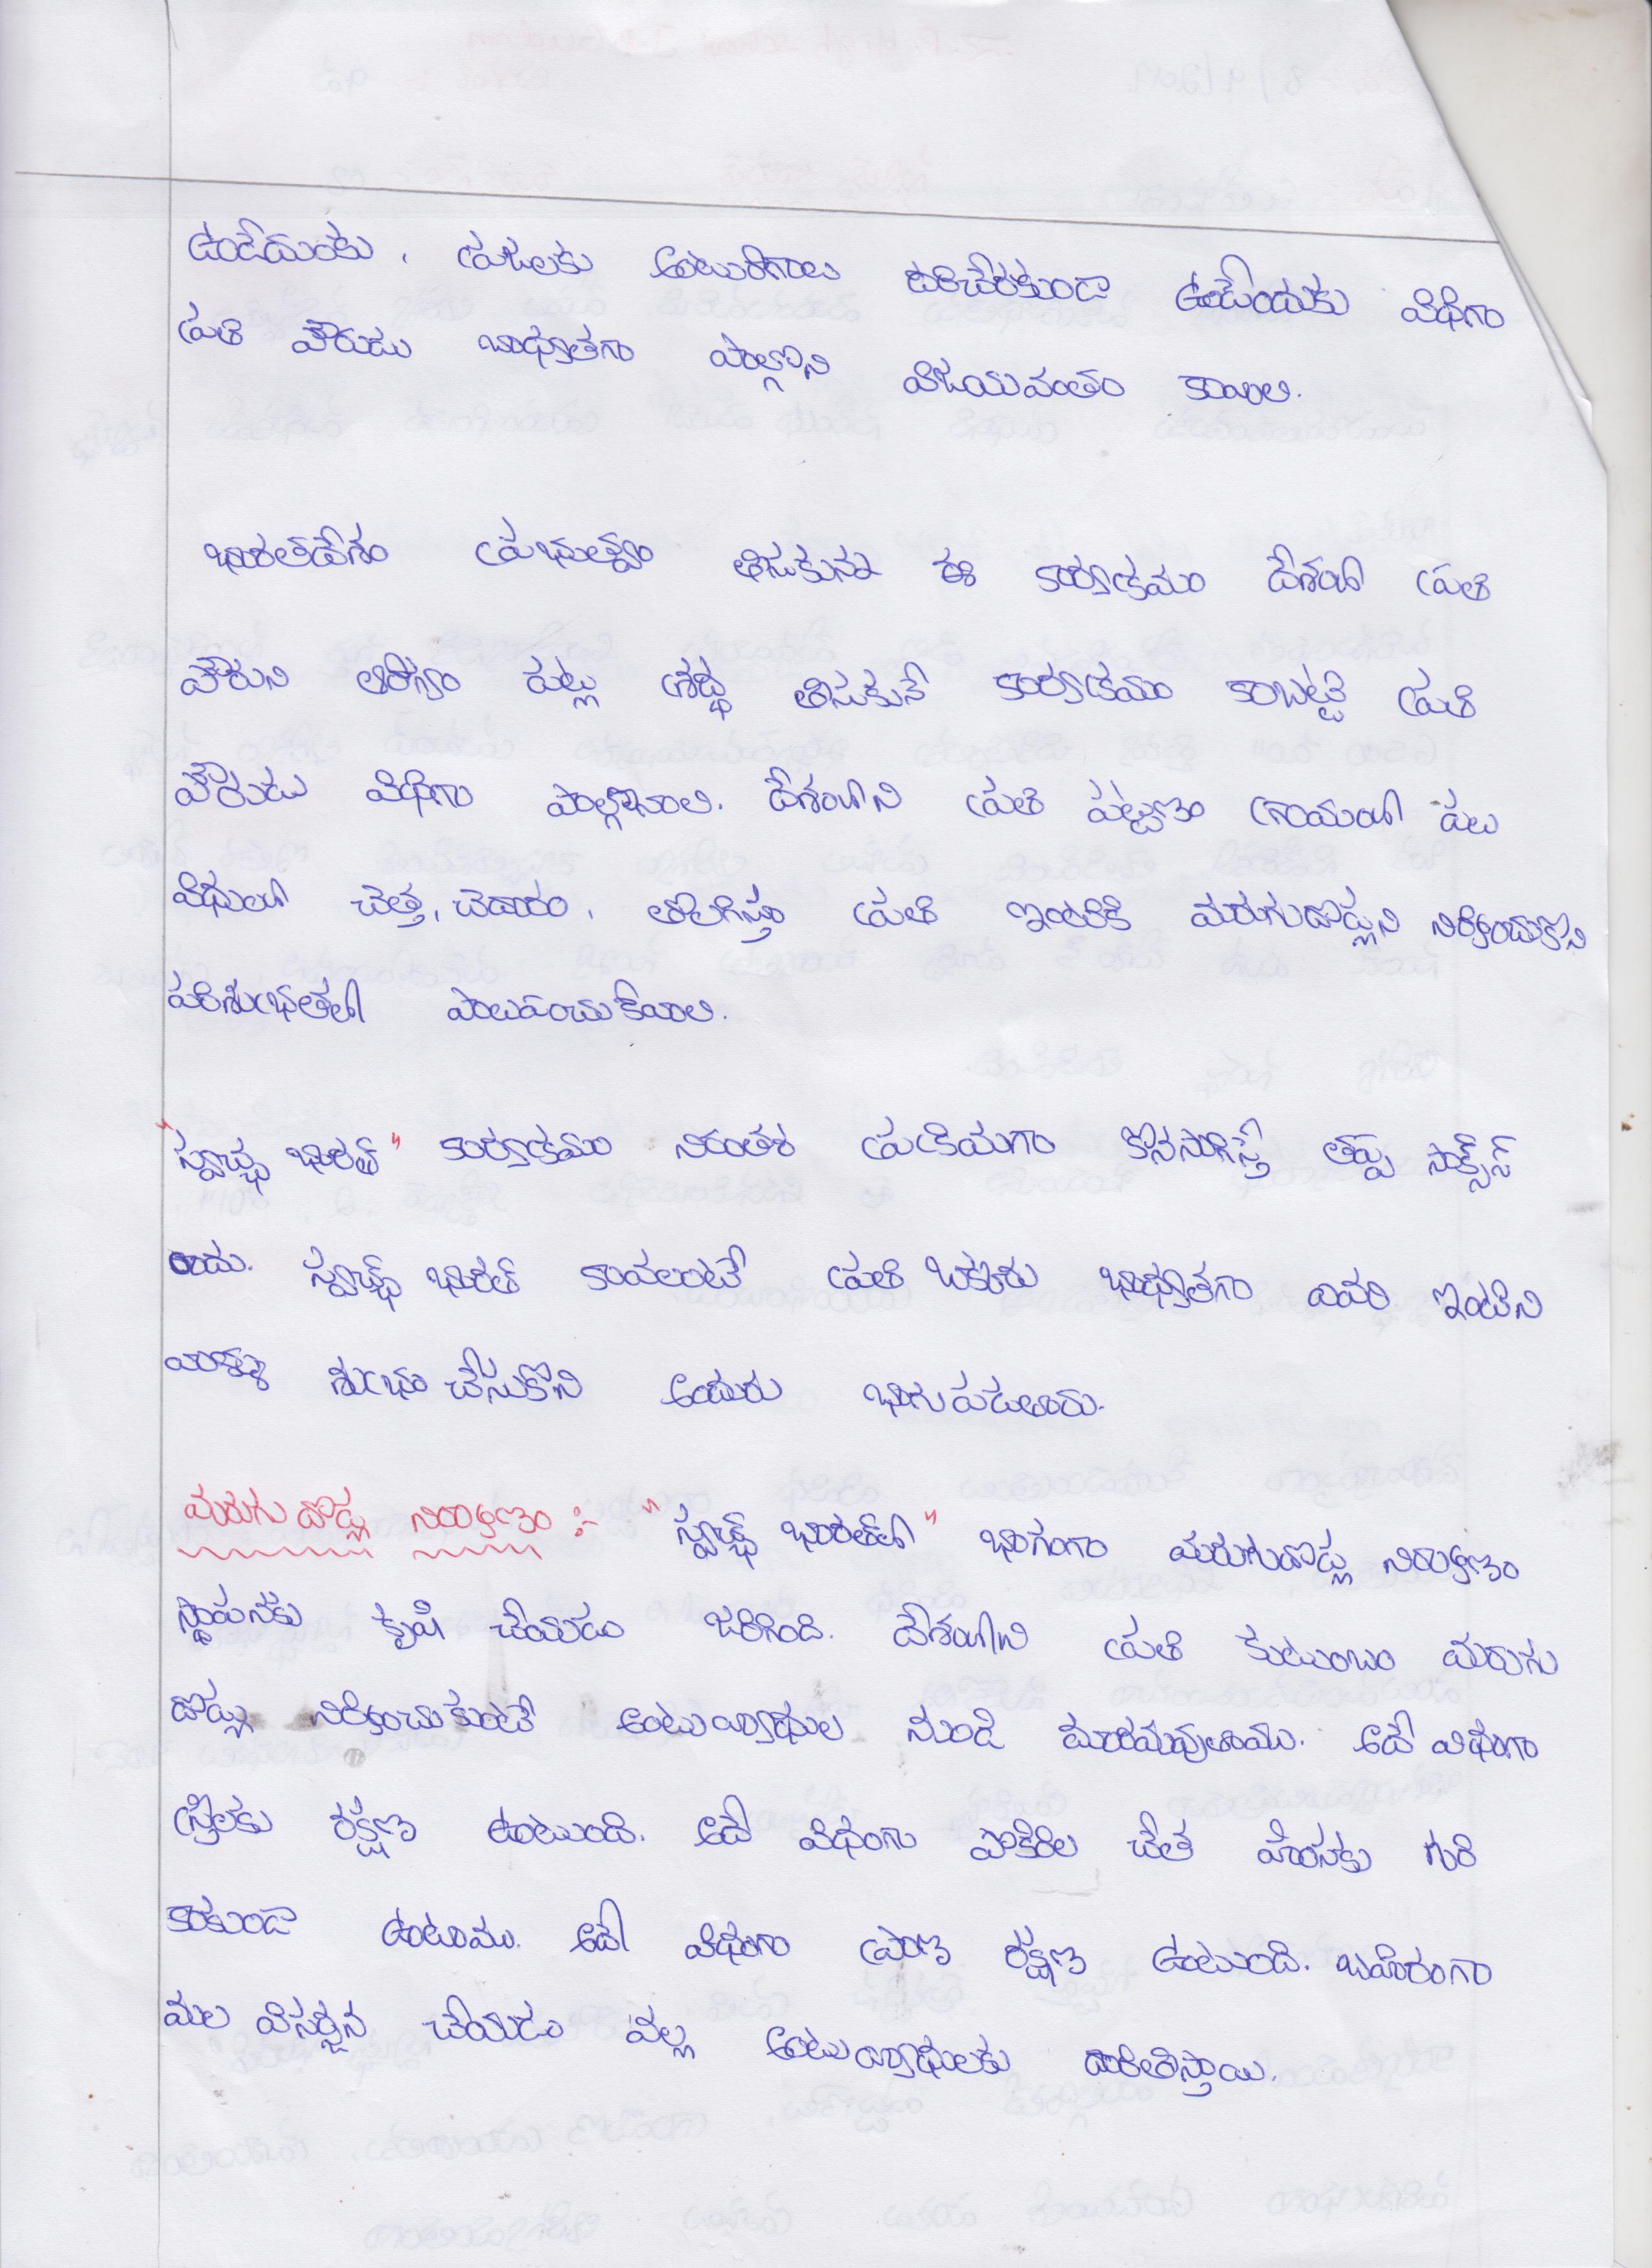 ఉండేదుంకు, ప్రజలకు అంటురోగాలు దరిచేరకుండా ఉండేందుకు విధిగా
ప్రతి పౌరుడు బాధ్యతగా పాల్గొని విజయవంతం కావాలి.
భారతదేశం ప్రభుత్వం తీసుకున్న ఈ కార్యక్రమం దేశంలో ప్రతి
పౌరుని ఆరోగ్యం పట్ల శ్రద్ధ తీసుకునే కార్యక్రమం కాబట్టి ప్రతి
పౌరుడు విధిగా పాల్గొనాలి. దేశంలోని ప్రతి పట్టణం గ్రామంలో పలు
విధులలో చెత్త, చెదారం, తొలగిస్తూ ప్రతి ఇంటికి మరుగుదొడ్లని నిర్మించుకొని
పరిశుభ్రతలో పాలుపంచుకోవాలి.
"స్వచ్ఛ భారత్" కార్యక్రమం నిరంతర ప్రక్రియగా కొనసాగిస్తే తప్ప సక్సెస్
కాదు. స్వచ్ఛ్ భారత్ కావలంటే ప్రతి ఒక్కరు భాధ్యతగా ఎవరి ఇంటిని
వాళ్ళు శుభ్రం చేసుకొని అందురు భాగుపడతారు.
మరుగు దొడ్ల నిర్మాణం :- "స్వచ్ఛ్ భారత్‌లో" భాగంగా మరుగుదొడ్ల నిర్మాణం
స్థాపనకు కృషి చేయడం జరిగింది. దేశంలోని ప్రతి కుటుంబం మరుగు
దొడ్లు నిర్మించుకుంటే అంటువ్యాధుల నుండి దూరమవుతాము. అదే విధంగా
స్త్రీలకు రక్షణ ఉంటుంది. అదే విధంగా పోకిరిల చేత హింసకు గురి
కాకుండా ఉంటాము. అదే విధంగా ప్రాణ రక్షణ ఉంటుంది. బహిరంగా
మల విసర్జన చేయడం వల్ల అంటువ్యాధులకు దారితీస్తాయి.